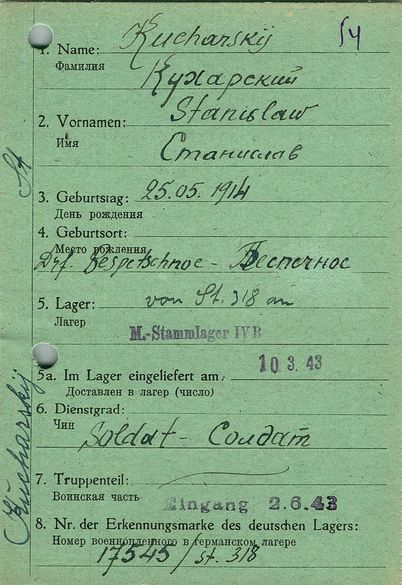 54
1. Name: Kucharskij
Фамилия
Кухарский
2. Vornamen: Stanislaw
Имя
Станислав
St
3. Geburtstag: 25.05.1914
День рождения
4. Geburtsort:
Место рождения
Drf. Bespetschnoe - Беспечное
5. Lager: von St. 318 an
Лагер
M.-Stammlager IV B
10.3.43
5a. Im Lager eingeliefert am:
Доставлен в лагер (число)
6. Dienstgrad:
Чин
Soldat - Солдат
7. Truppenteil:
Воинская часть
Eingang 2.6.43
8. Nr. der Erkennungsmarke des deutschen Lagers:
Номер военнопленного в германском лагере
17545 / St. 318
Kucharskij